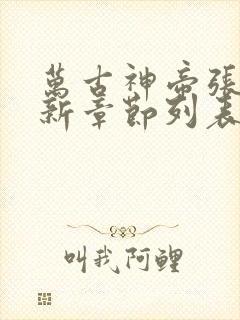 萬古神帝張
新章節列表
叫我阿鯉